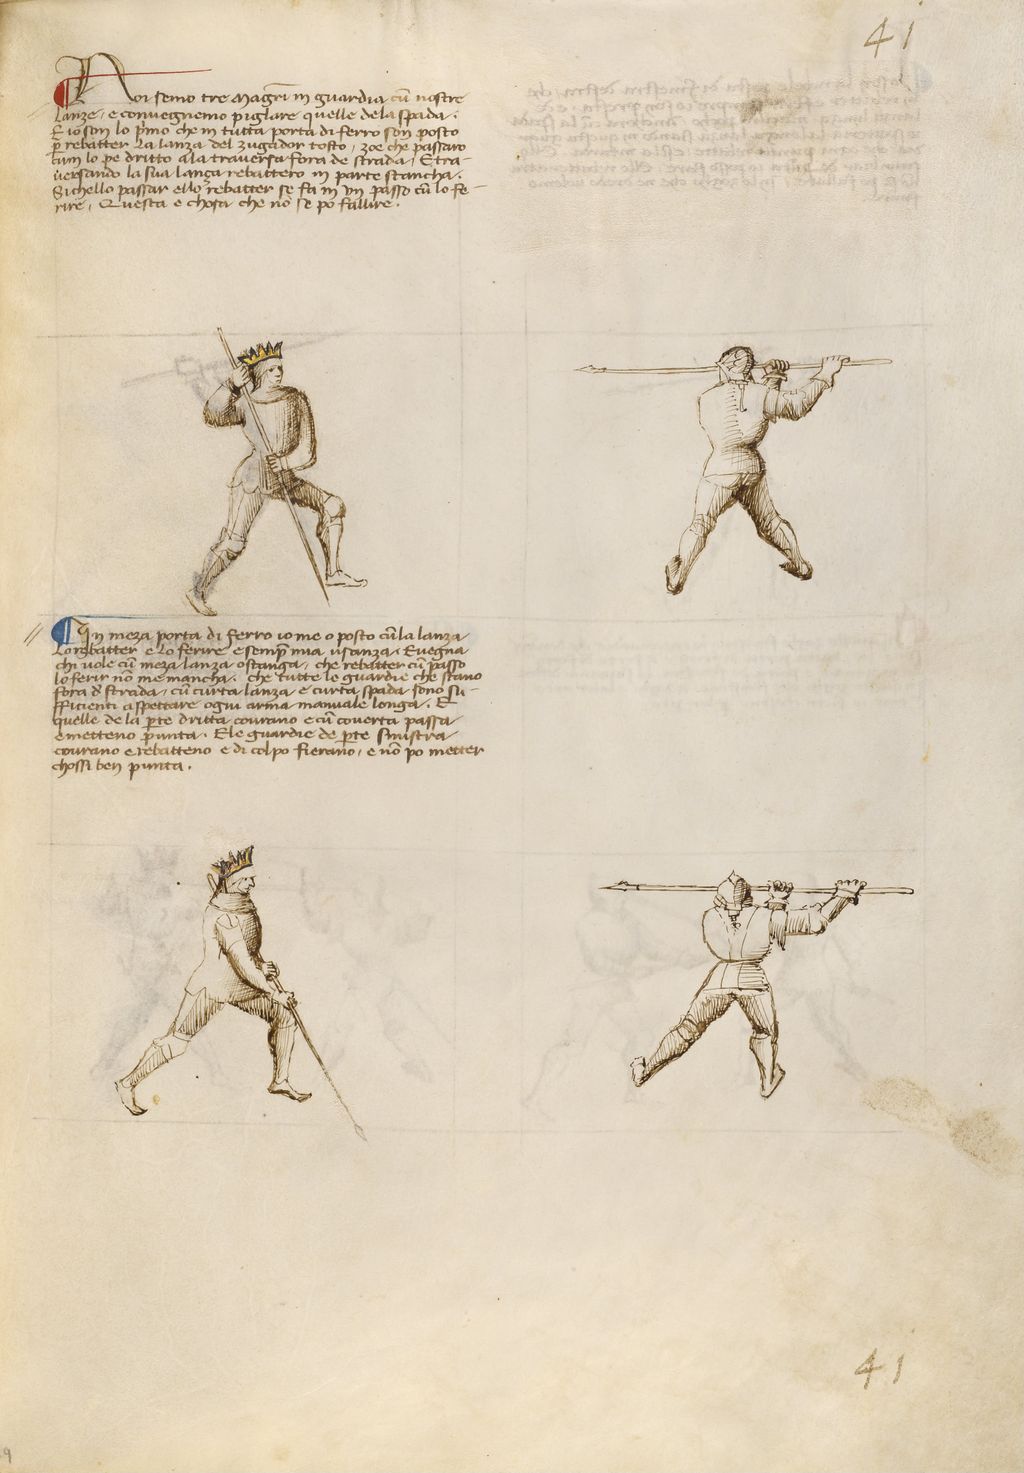 41
Noi semo tre Magrī in guardia cū nostre
lanze, e convegnemo piglare quelle dela spada.
E io son lo p̄mo che in tutta porta di ferro son posto
p̄ rebatter la lanza del zugador tosto, zoe che passaro
cum lo pe dritto a la traversa fora de strada, E tra-
versando la sua lanza rebattero in parte stancha.
Sichello passar ello rebatter se fa in un passo cū lo fe-
rire, Questa e chosa che nō se po fallire.
In meza porta di ferro io me o posto cū la lanza
Lo rebatter e lo ferire e semp̄ mia usanza. E vegna
chi vole cū meza lanza o stanga, che rebatter cū passo
lo ferir nō me mancha. Che tutte le guardie che stano
fora d̄ strada, cū curta lanza e curta spada sono su-
fficienti aspettare ogni arma manuale longa. E
quelle de la p̄te dritta covrano e cū coverta passa
e metteno punta. E le guardie de p̄te sinistra
covrano e rebatteno e di colpo fierano, e nō po metter
chossi ben punta.
41
9